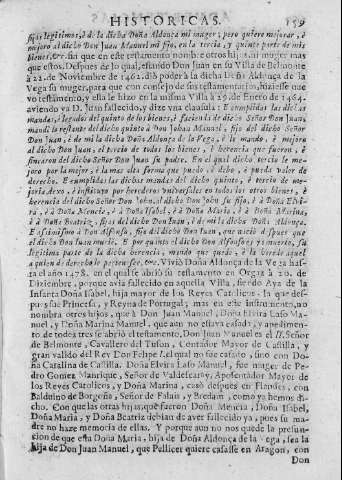 HISTORICAS. 159
hijos legitimos, è de la dicha Doña Aldonça mi muger; pero quiero mejorar, è
mejoro al dicho Don Juan Manuel mi fijo, en la tercia, y quinte parte de mis
bienes, &c. sin que en este testamento nombre otros hijos, ni muger mas
que estos. Despues de lo qual, estando Don Juan en su Villa de Belmonte
à 22. de Noviembre de 1462. diò poder à la dicha Doña Aldonça de la
Vega su muger, para que con consejo de sus testamentarios, hiziesse nue
vo testamento, y ella le hizo en la misma Villa à 29. de Enero de 1464.
aviendo ya D. Juan fallecido, y dize vna clausula: E cumplidas las dichas
mandas, è legados del quinto de los bienes, è facienda de dicho Señor Don Juan,
mandò lo restante del dicho quinto à Don Johan Manuel, fijo del dicho Señor
Don Juan, è de mi la dicha Doña Aldonça de la Vega, è le mando è mejoro
al dicho Don Juan, el tercio de todos los bienes, è herencia que fueron, è
fincaron del dicho Señor Don Juan su padre. En el qual dicho tercio le me-
joro por la mejor, è la mas alta firma que puedo è debo, è puede valer de
derecho. E cumplidas las dichas mandas del dicho quinto, è tercio de me-
joria. Dexo, è instituyo por herederos vniversales en todos los otros bienes, è
herencia del dicho Señor Don John, al dicho Don John su fijo, è à Doña Elvi-
ra, è à Doña Mencia, è à Doña Isabel, è à Doña Maria, è à Doña Marina,
è à Doña Beatriz, fijas del dicho Don Juan, è de mi la dicha Doña Aldonça.
E assimismo à Don Alfonso, fijo del dicho Don Juan, que naciò despues que
el dicho Don Juan muriò. E por quinto el dicho Don Alfonso es fallecido, su
legitima parte de la dicha herencia, mando que quede, è la herede aquel
a quien de derecho le pertenesce, &c. Viviò Doña Aldonça de la Vega has-
ta el año 1478. en el qual se abriò su testamento en Orgaz à 20. de
Diziembre, porque avia fallecido en aquella Villa, siendo Aya de la
Infanta Doña Isabel, hija mayor de los Reyes Catolicos, la que des-
pues fue Princesa, y Reyna de Portugal; mas en este instrumento, no
nombra otros hijos, que à Don Juan Manuel, Doña Elvira Laso Ma-
nuel, y Doña Marina Manuel, que aun no estava casada, y à pedimen-
to de todos tres se abriò el testamento. Don Juan Manuel es el II. Señor
de Belmonte, Cavallero del Tuson, Contador Mayor de Castilla, y
gran valido del Rey Don Felipe I. el qual no fue casado, sino con Do-
ña Catalina de Castilla. Doña Elvira Laso Manuel, fue muger de Pe-
dro Gomez Manrique, Señor de Valdescaray, Aposentador Mayor de
los Reyes Catolicos, y Doña Marina, casò despues en Flandes, con
Balduino de Borgoña, Señor de Falais, y Bredan, como ya hemos di-
cho. Con que las otras hijas, que fueron Doña Mencia, Doña Isabel,
Doña Maria, y Doña Beatriz debian de aver fallecido ya, pues su ma-
dre no haze memoria de ellas. Y porque aun no nos quede la presun-
cion de que esta Doña Maria, hija de Doña Aldonça de la Vega, sea la
hija de Don Juan Manuel, que Pellicer quiere casasse en Aragon, con
Don